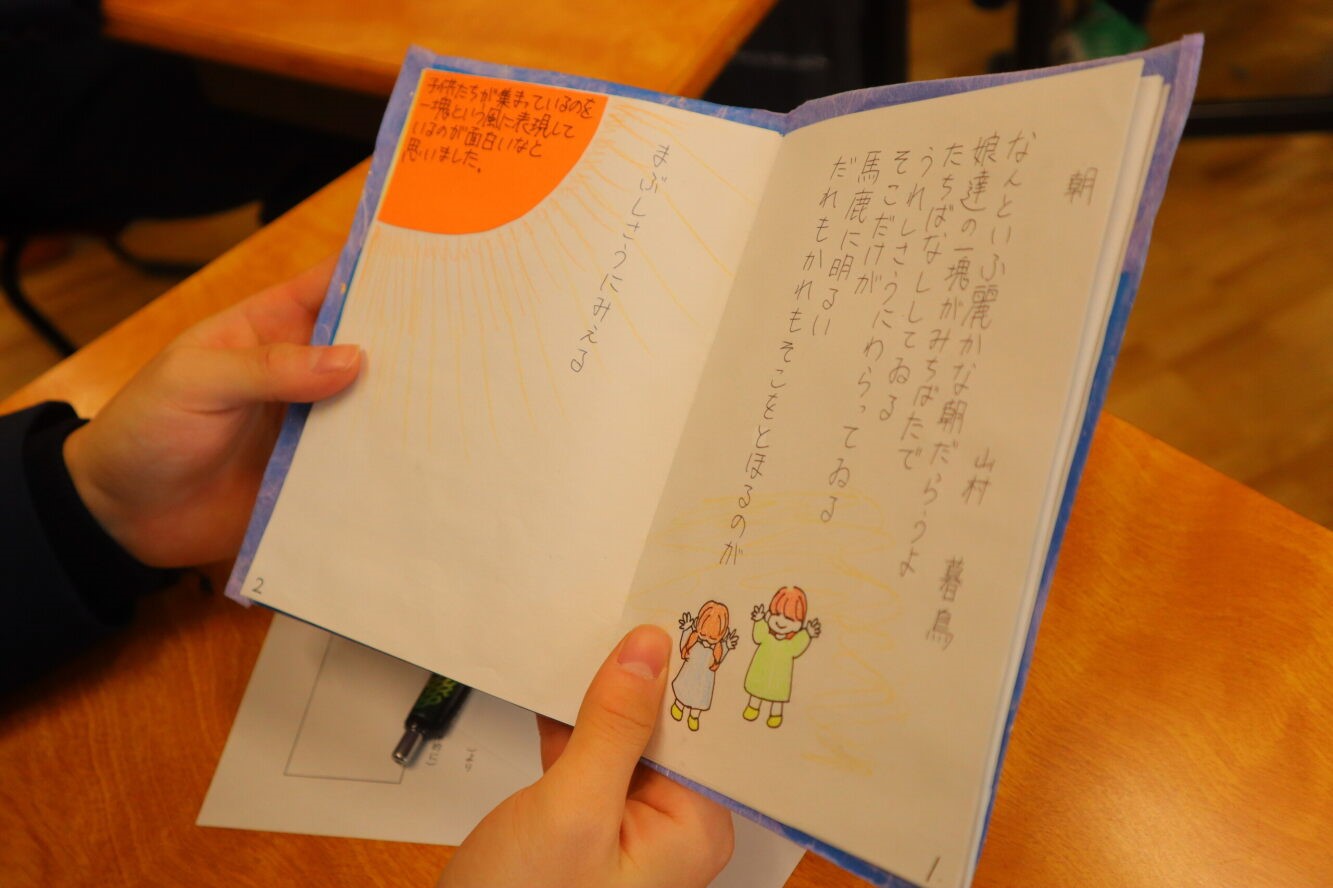 朝
山村 暮鳥
なんといふ麗かな朝だらうよ
娘達の一塊がみちばたで
たちばなししてゐる
うれしさうにわらってゐる
そこだけが
馬鹿に明るい
だれもかれもそこをとほるのが
まぶしさうにみえる
子供たちが集まっているのを
一塊という風に表現して
いるのが面白いなと
思いました。
1
2